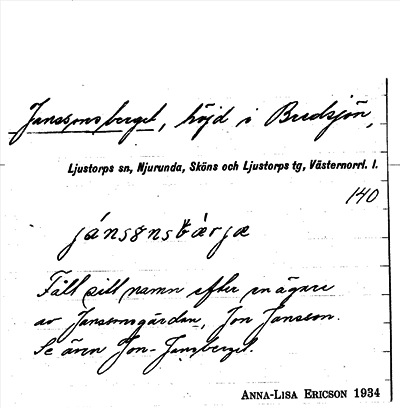 Janssonsberget, höjd i Bredsjön,
Ljustorps sn, Njurunda, Sköns och Ljustorps tg, Västernorrl. l.
140
jánsònsbàrjæ
Fått sitt namn efter en ägare
av Janssonsgården, Jon Jansson.
Se även Jon-Jansberget.
ANNA-LISA ERICSON 1934